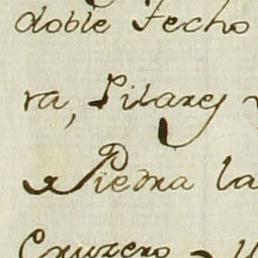 doble Techo
ra, Pilares
Piedra la
Cruzero